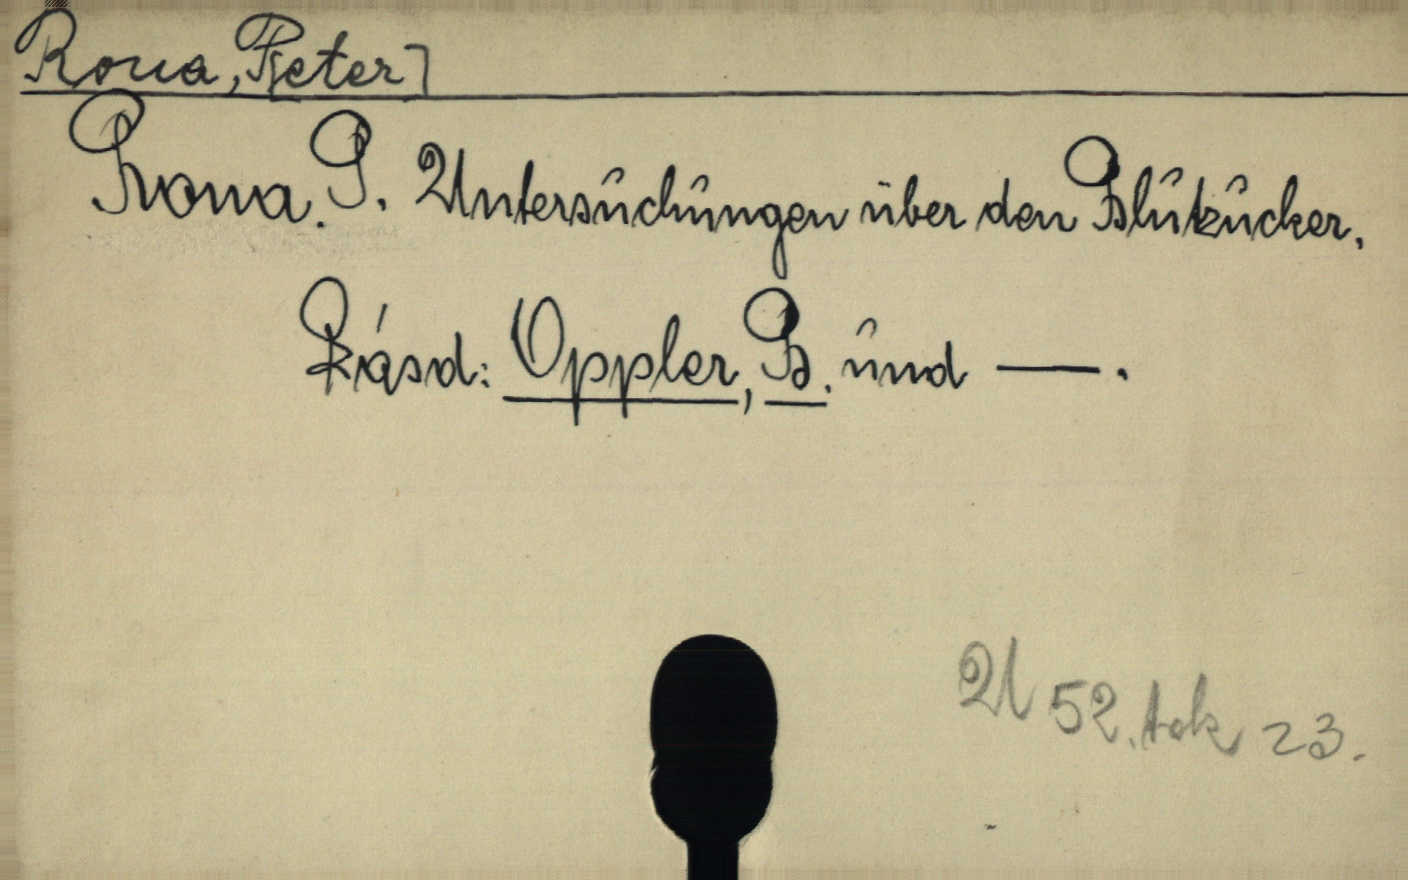 Rona, P[eter]
Rona. P. Untersuchungen über den Blutzucker.
Lásd: Oppler, B. und —.
U 52. tok 23.